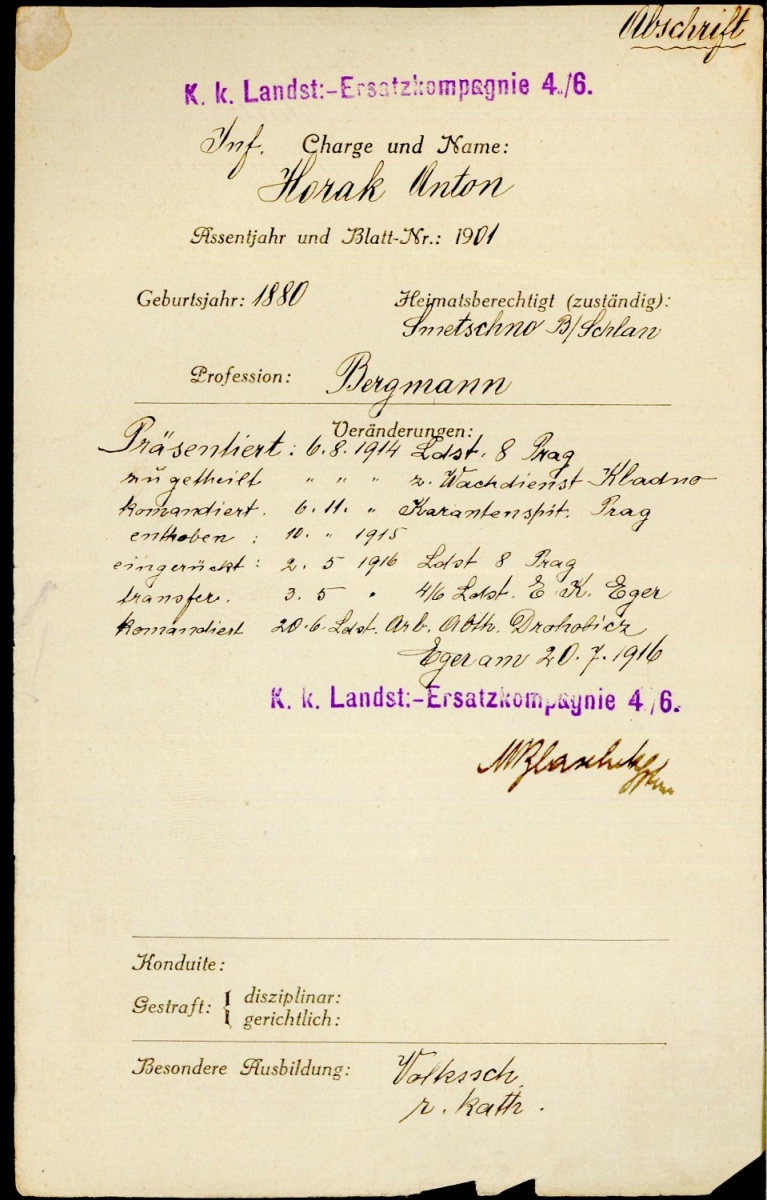 Abschrift
K. k. Landst:-Ersatzkompagnie 4./6.
Inf. Charge und Name:
Horak Anton
Assentjahr und Blatt-Nr.: 1901
Geburtsjahr: 1880 Heimatsberechtigt (zuständig):
Smetschno B/Schlan
Profession: Bergmann
Veränderungen:
Präsentiert: 6.8.1914 Ldst. 8 Prag
zugetheilt " " " z. Wachdienst Kladno
komandiert. 6.11. " Karantenspit. Prag
enthoben : 10. " 1915
eingerückt: 2. 5 1916 Ldst 8 Prag
transfer. 3. 5 " 4/6 Ldst. E. K. Eger
komandiert 20.6. Ldst. Arb. Abth. Drohobicz
Eger am 20.7.1916
K. k. Landst:-Ersatzkompagnie 4./6.
Konduite:
Gestraft: { disziplinar:
gerichtlich:
Besondere Ausbildung: Volkssch.
r. kath.